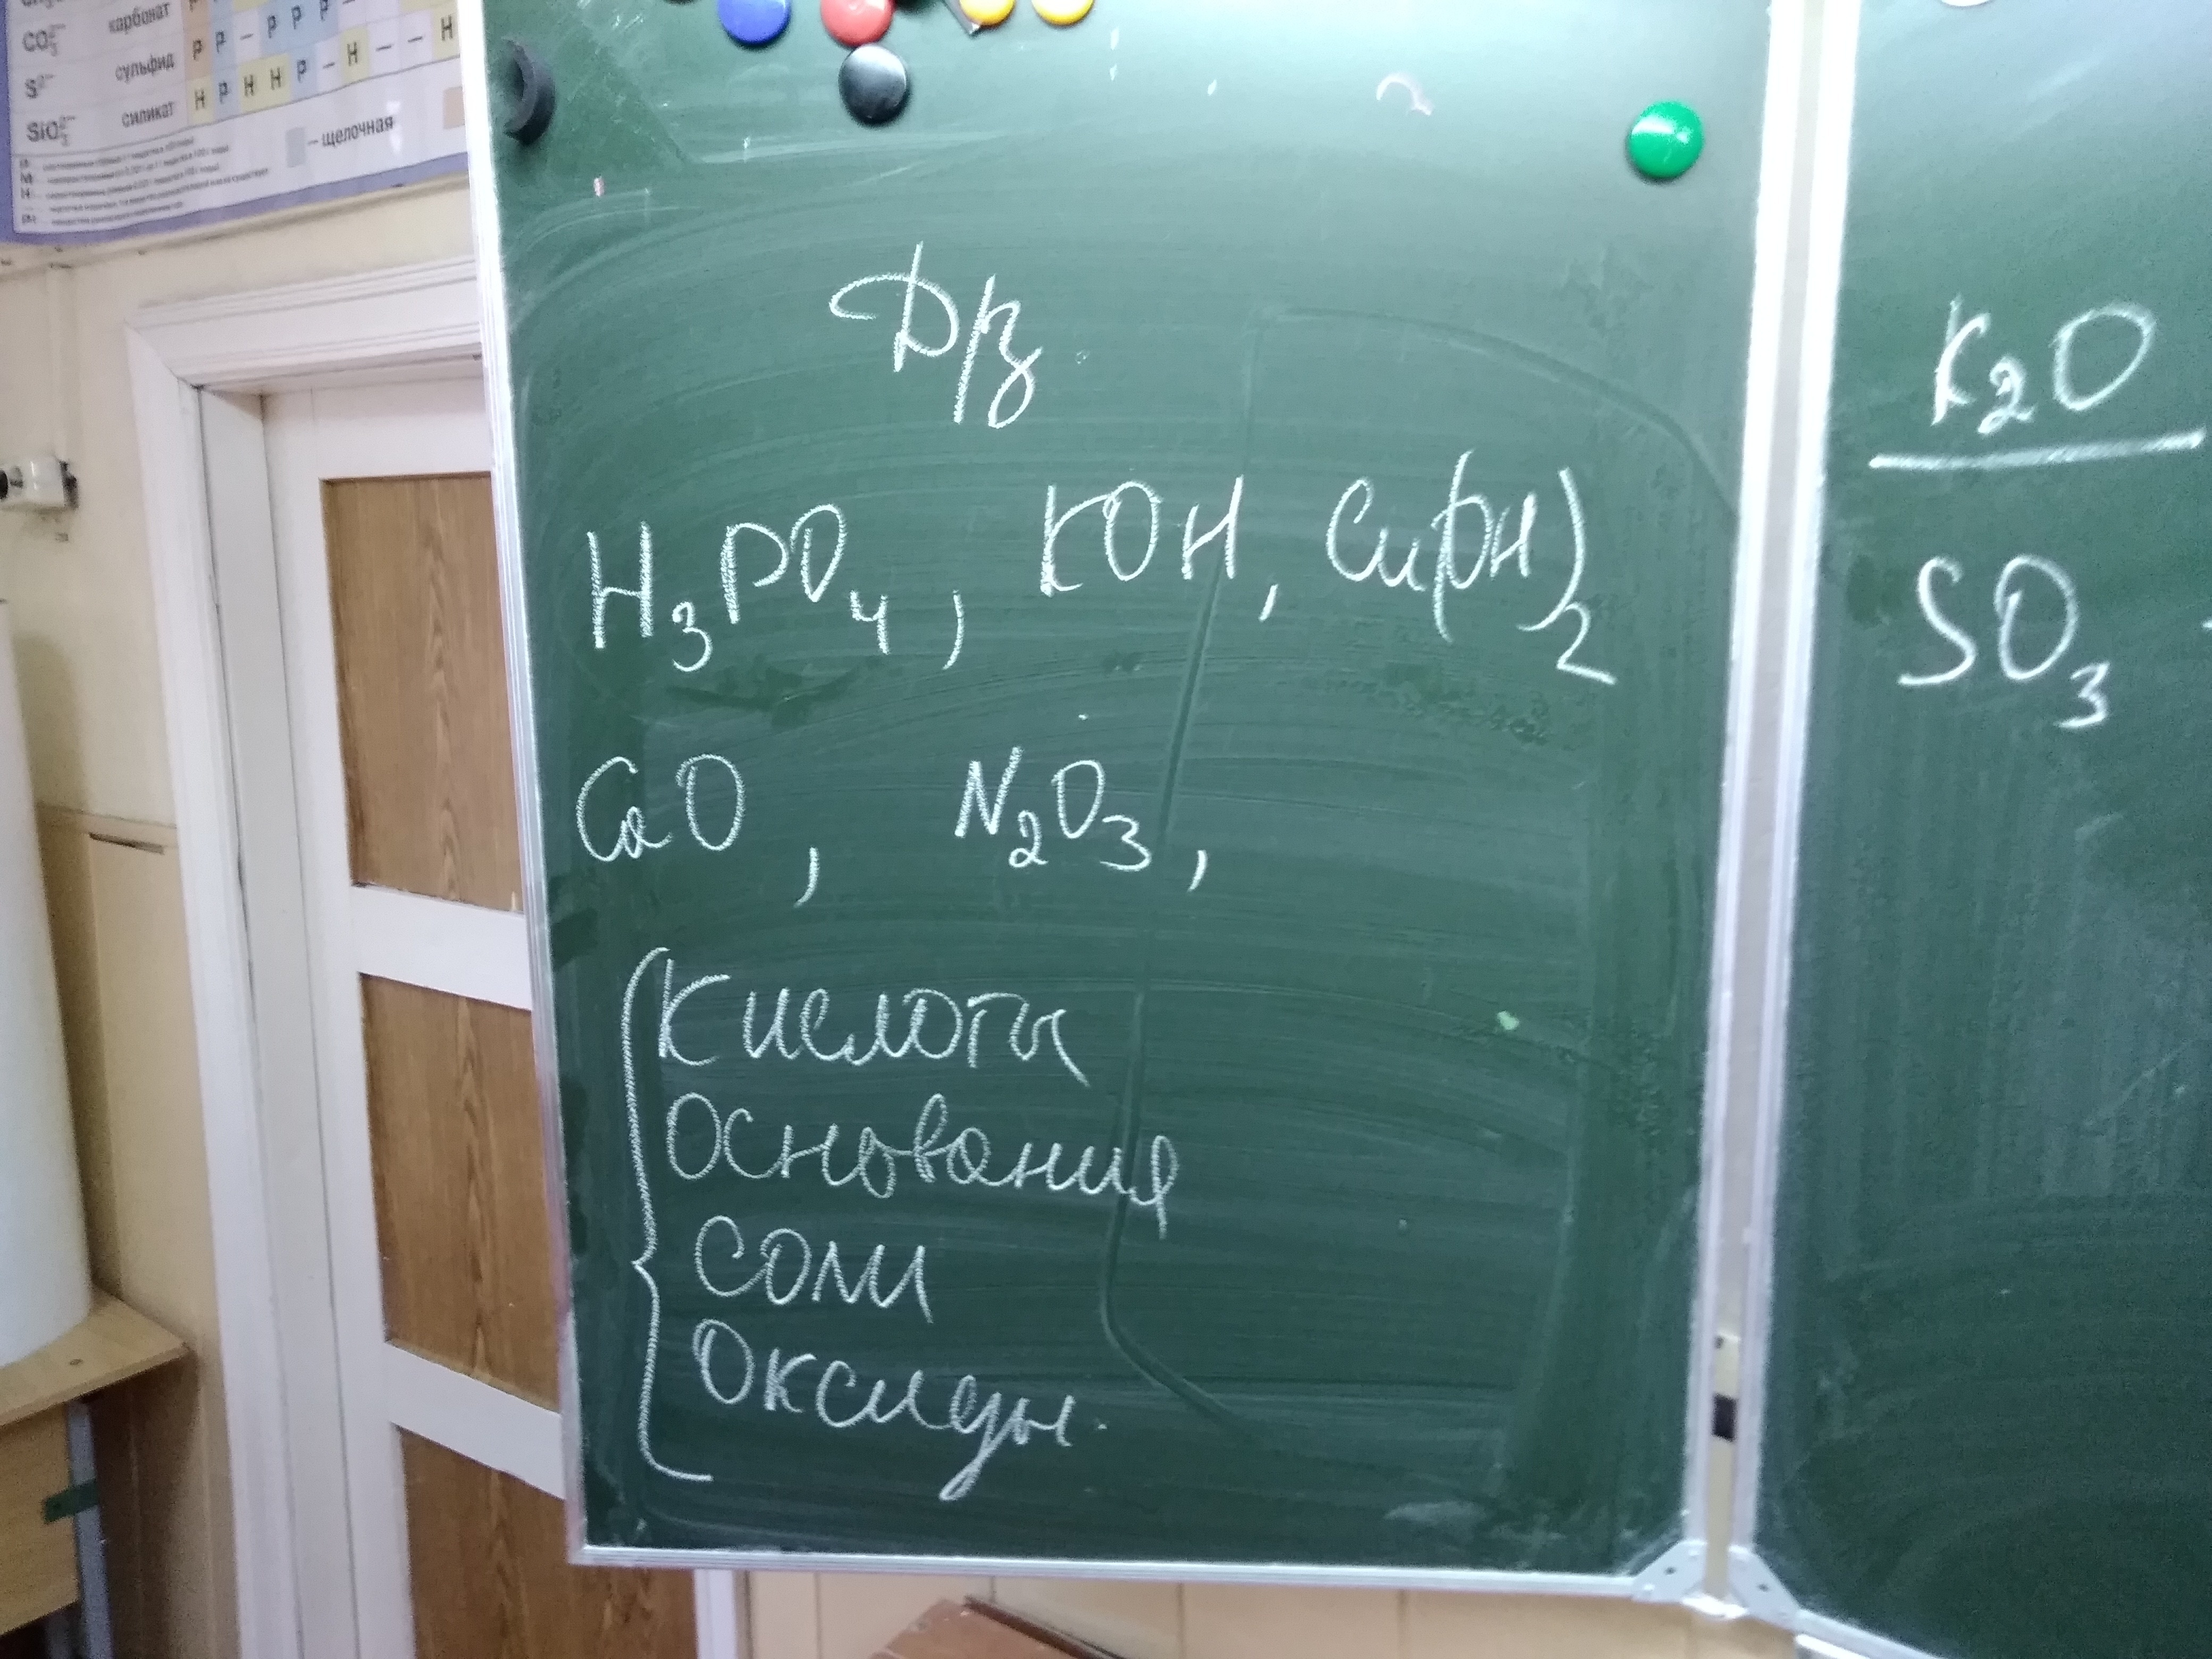 карбонат Р Р – Р Р Р –
CO₃²⁻ сульфид Р Р – Н – – Н
S²⁻ силикат Н Р Н Н Р –
SiO₃²⁻
– щелочная
Д/з.
H₃PO₄, KOH, Cu(OH)₂
CaO, N₂O₃,
Кислоты
Основания
Соли
Оксиды.
K₂O
SO₃